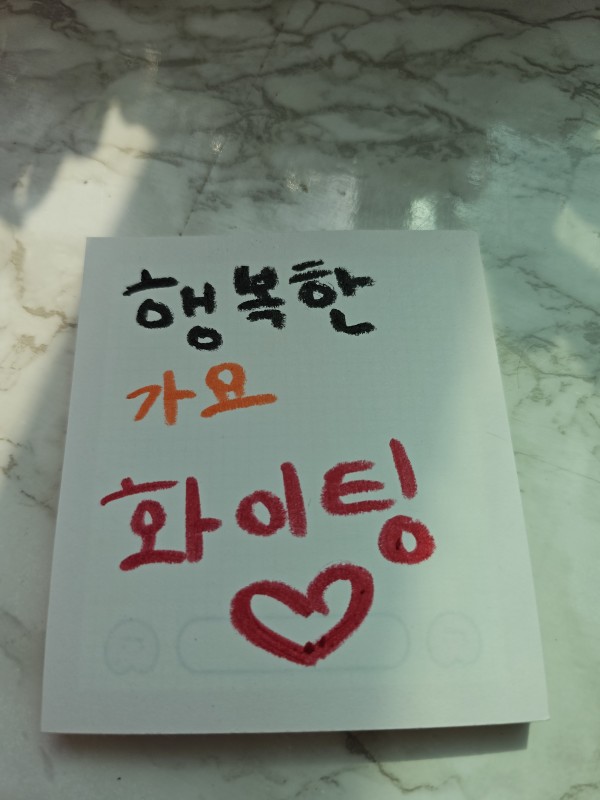 행복한
가요
화이팅